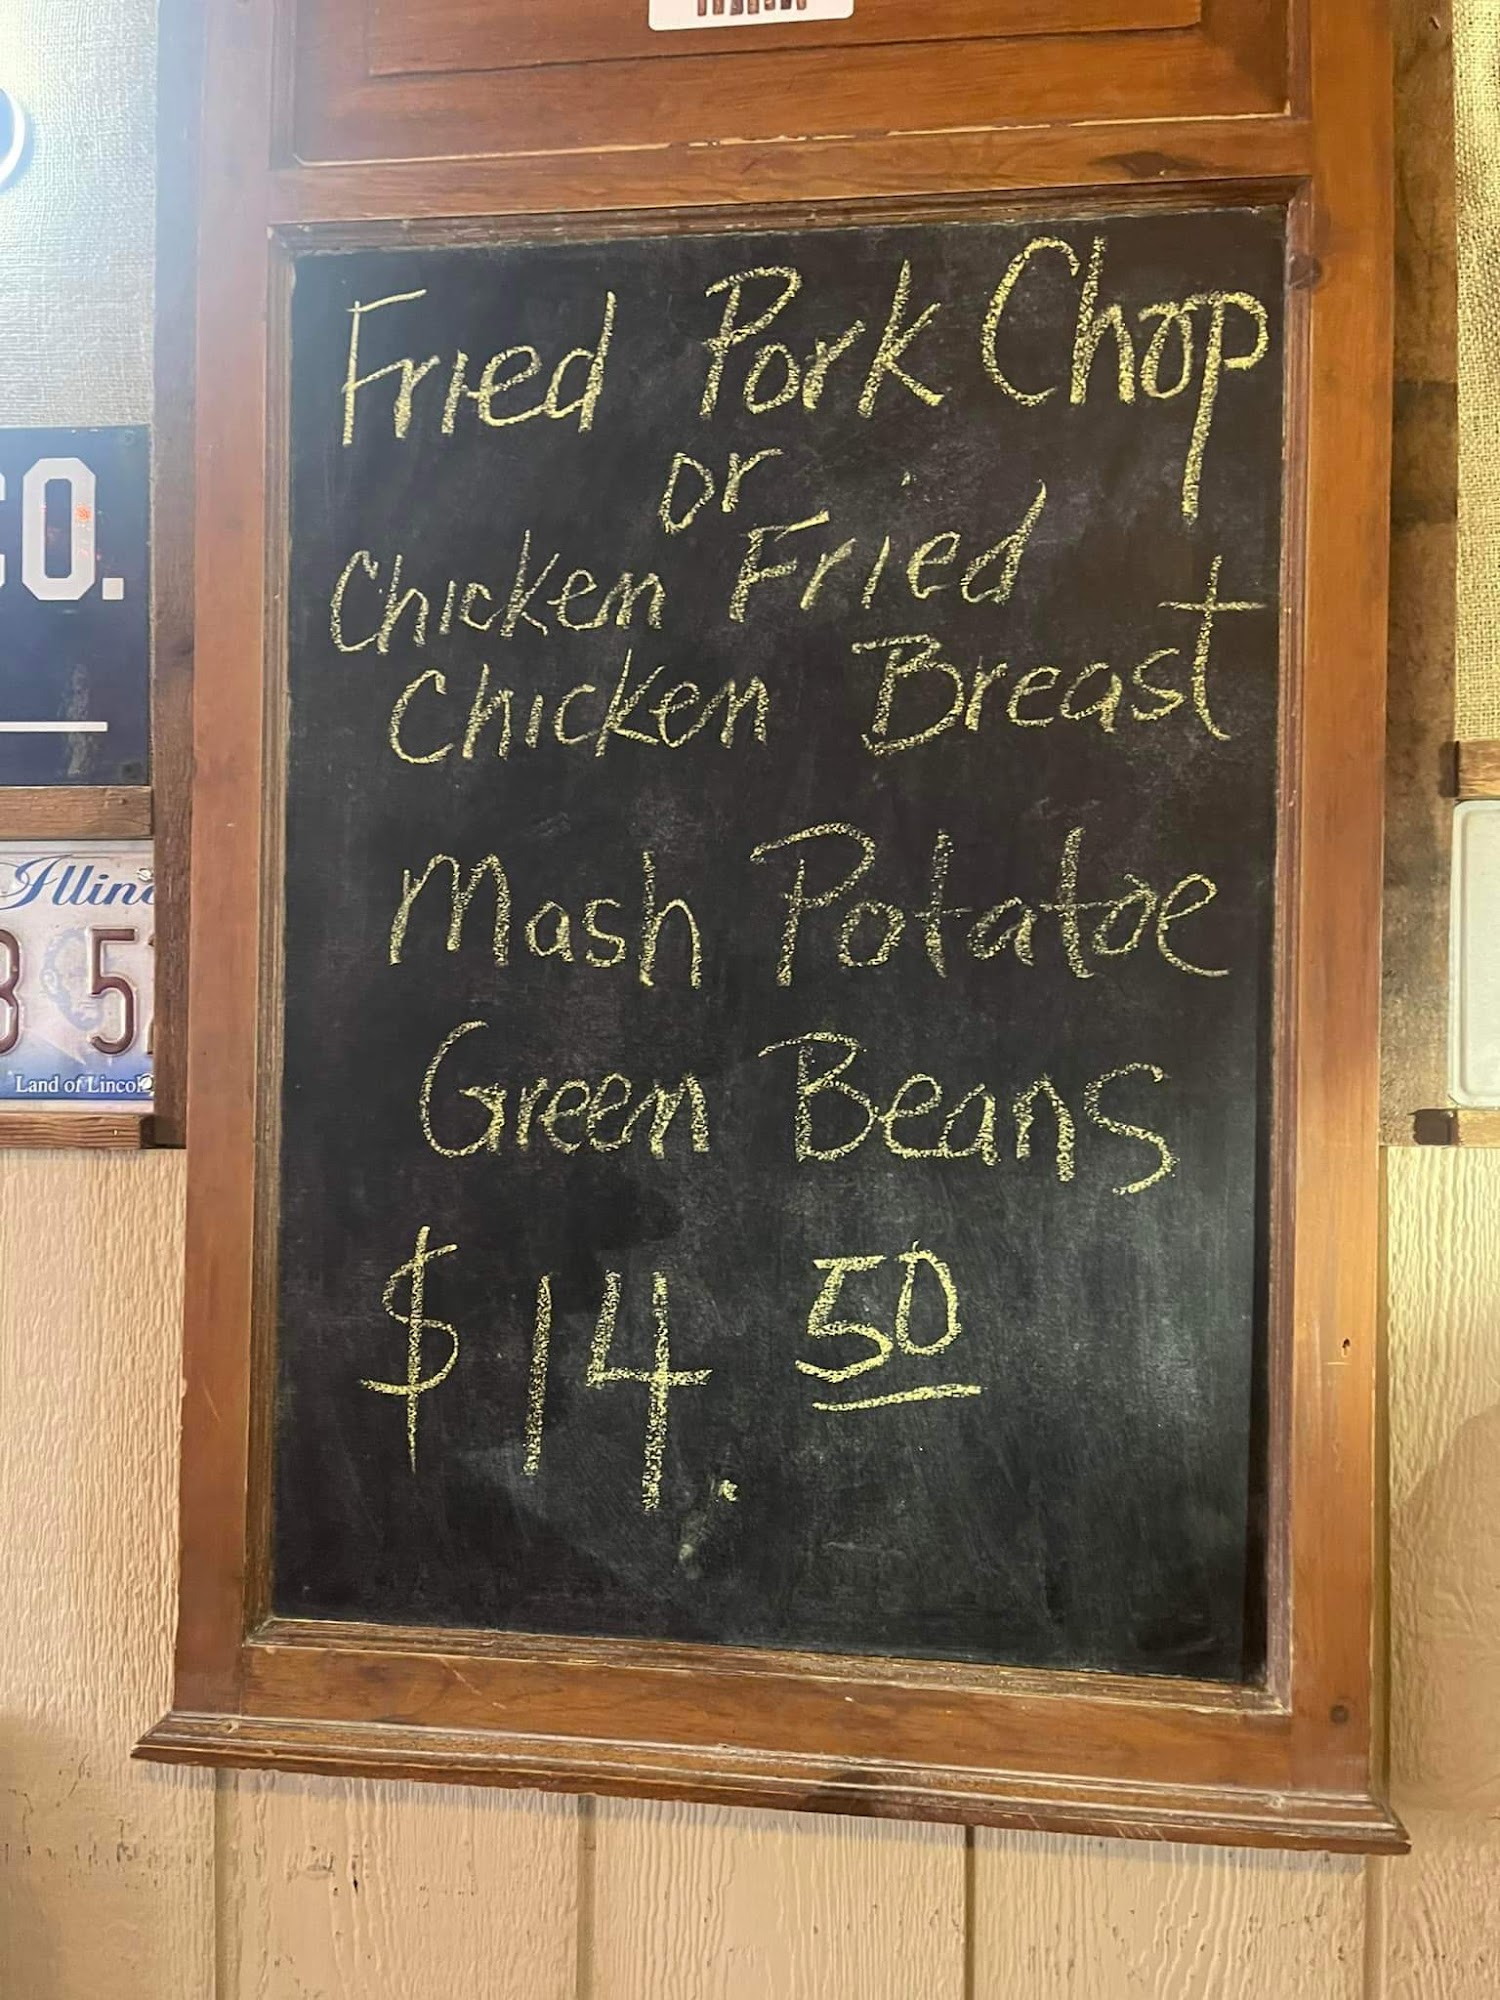 Fried Pork Chop
or
Chicken Fried
Chicken Breast
Mash Potatoe
Green Beans
$14.50
CO.
Illino
3 52
Land of Lincol